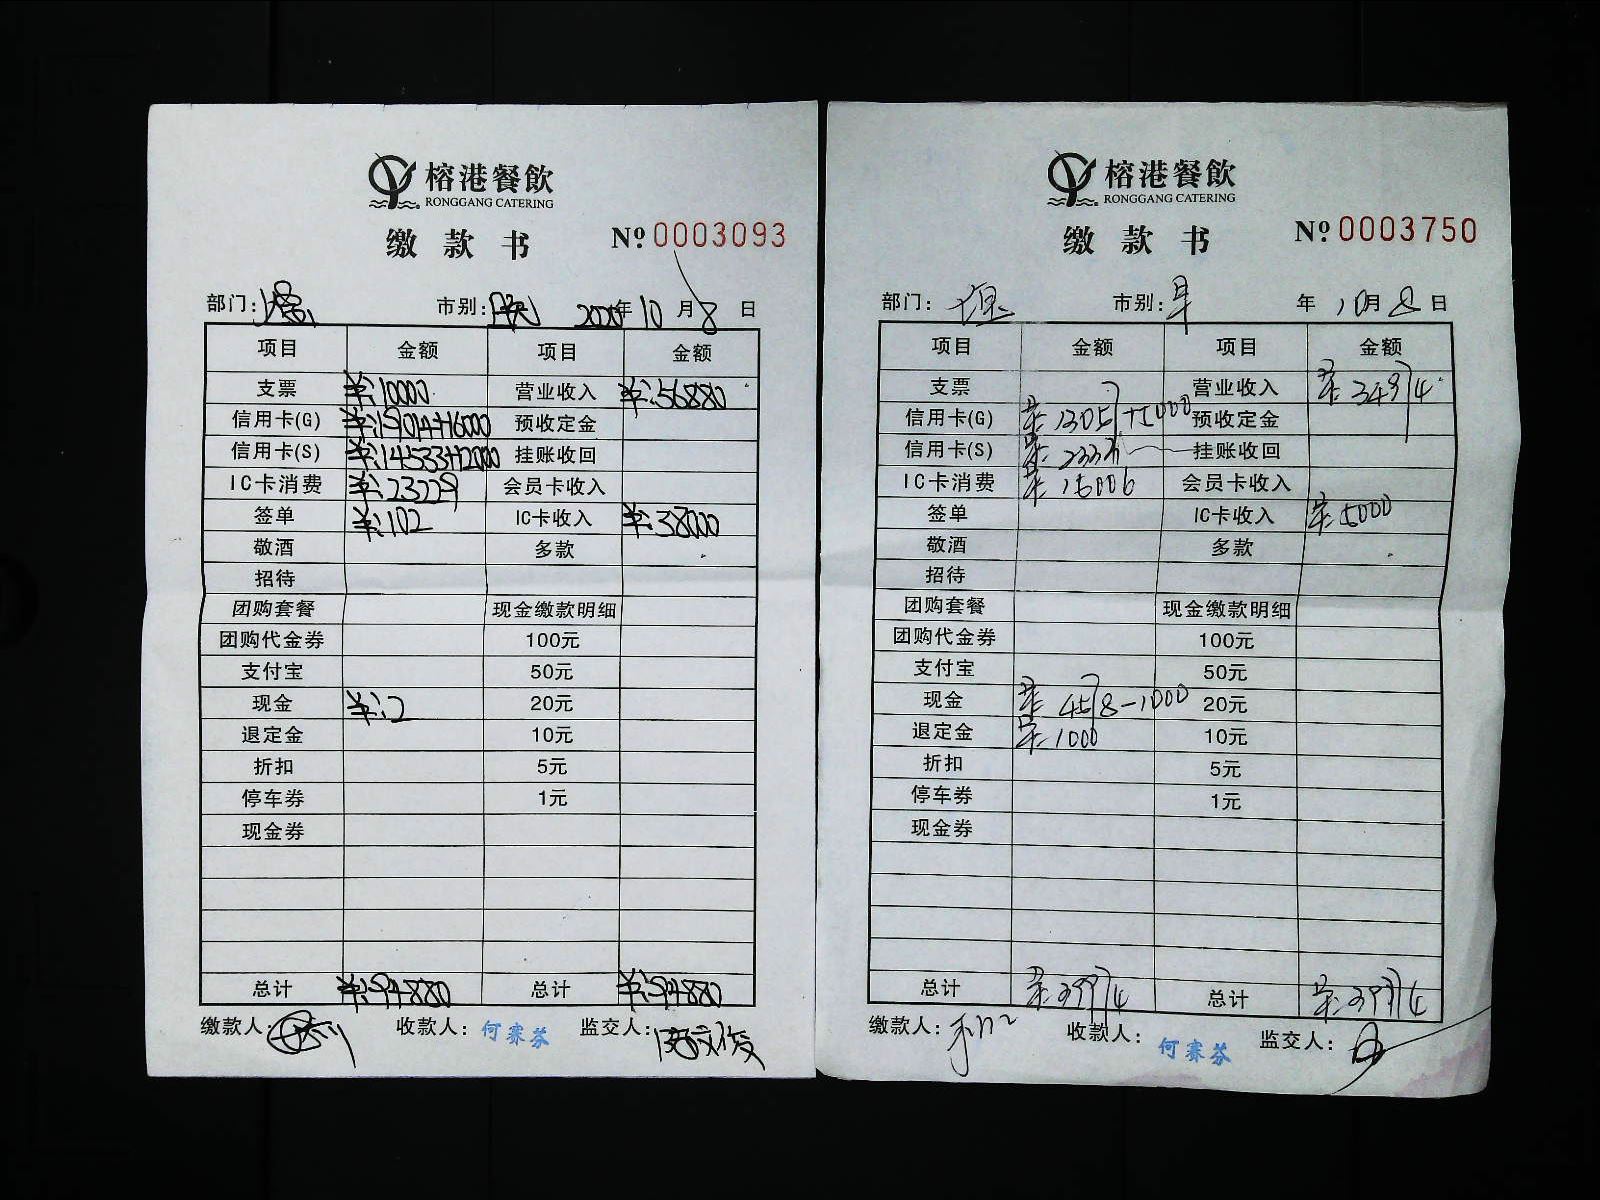 榕港餐飲
RONGGANG CATERING
缴款书 No 0003093
部门: 市别: 晚 2020年10月8日
项目 金额 项目 金额
支票 ¥:10000 营业收入 ¥:56880
信用卡(G) ¥:19014+16000 预收定金
信用卡(S) ¥:14533+12000 挂账收回
IC卡消费 ¥:23229 会员卡收入
签单 ¥:102 IC卡收入 ¥:38000
敬酒 多款
招待
团购套餐 现金缴款明细
团购代金券 100元
支付宝 50元
现金 ¥:2 20元
退定金 10元
折扣 5元
停车券 1元
现金券
总计 ¥:94880 总计 ¥:94880
缴款人: 收款人: 何赛芬 监交人:
榕港餐飲
RONGGANG CATERING
缴款书 No 0003750
部门: 市别: 早 年10月8日
项目 金额 项目 金额
支票 营业收入 ¥:34974
信用卡(G) ¥:13057+5000 预收定金
信用卡(S) ¥:2333 挂账收回
IC卡消费 ¥:15006 会员卡收入
签单 IC卡收入 ¥:5000
敬酒 多款
招待
团购套餐 现金缴款明细
团购代金券 100元
支付宝 50元
现金 ¥:4578-1000 20元
退定金 ¥:1000 10元
折扣 5元
停车券 1元
现金券
总计 ¥:39974 总计 ¥:39974
缴款人: 收款人: 何赛芬 监交人: